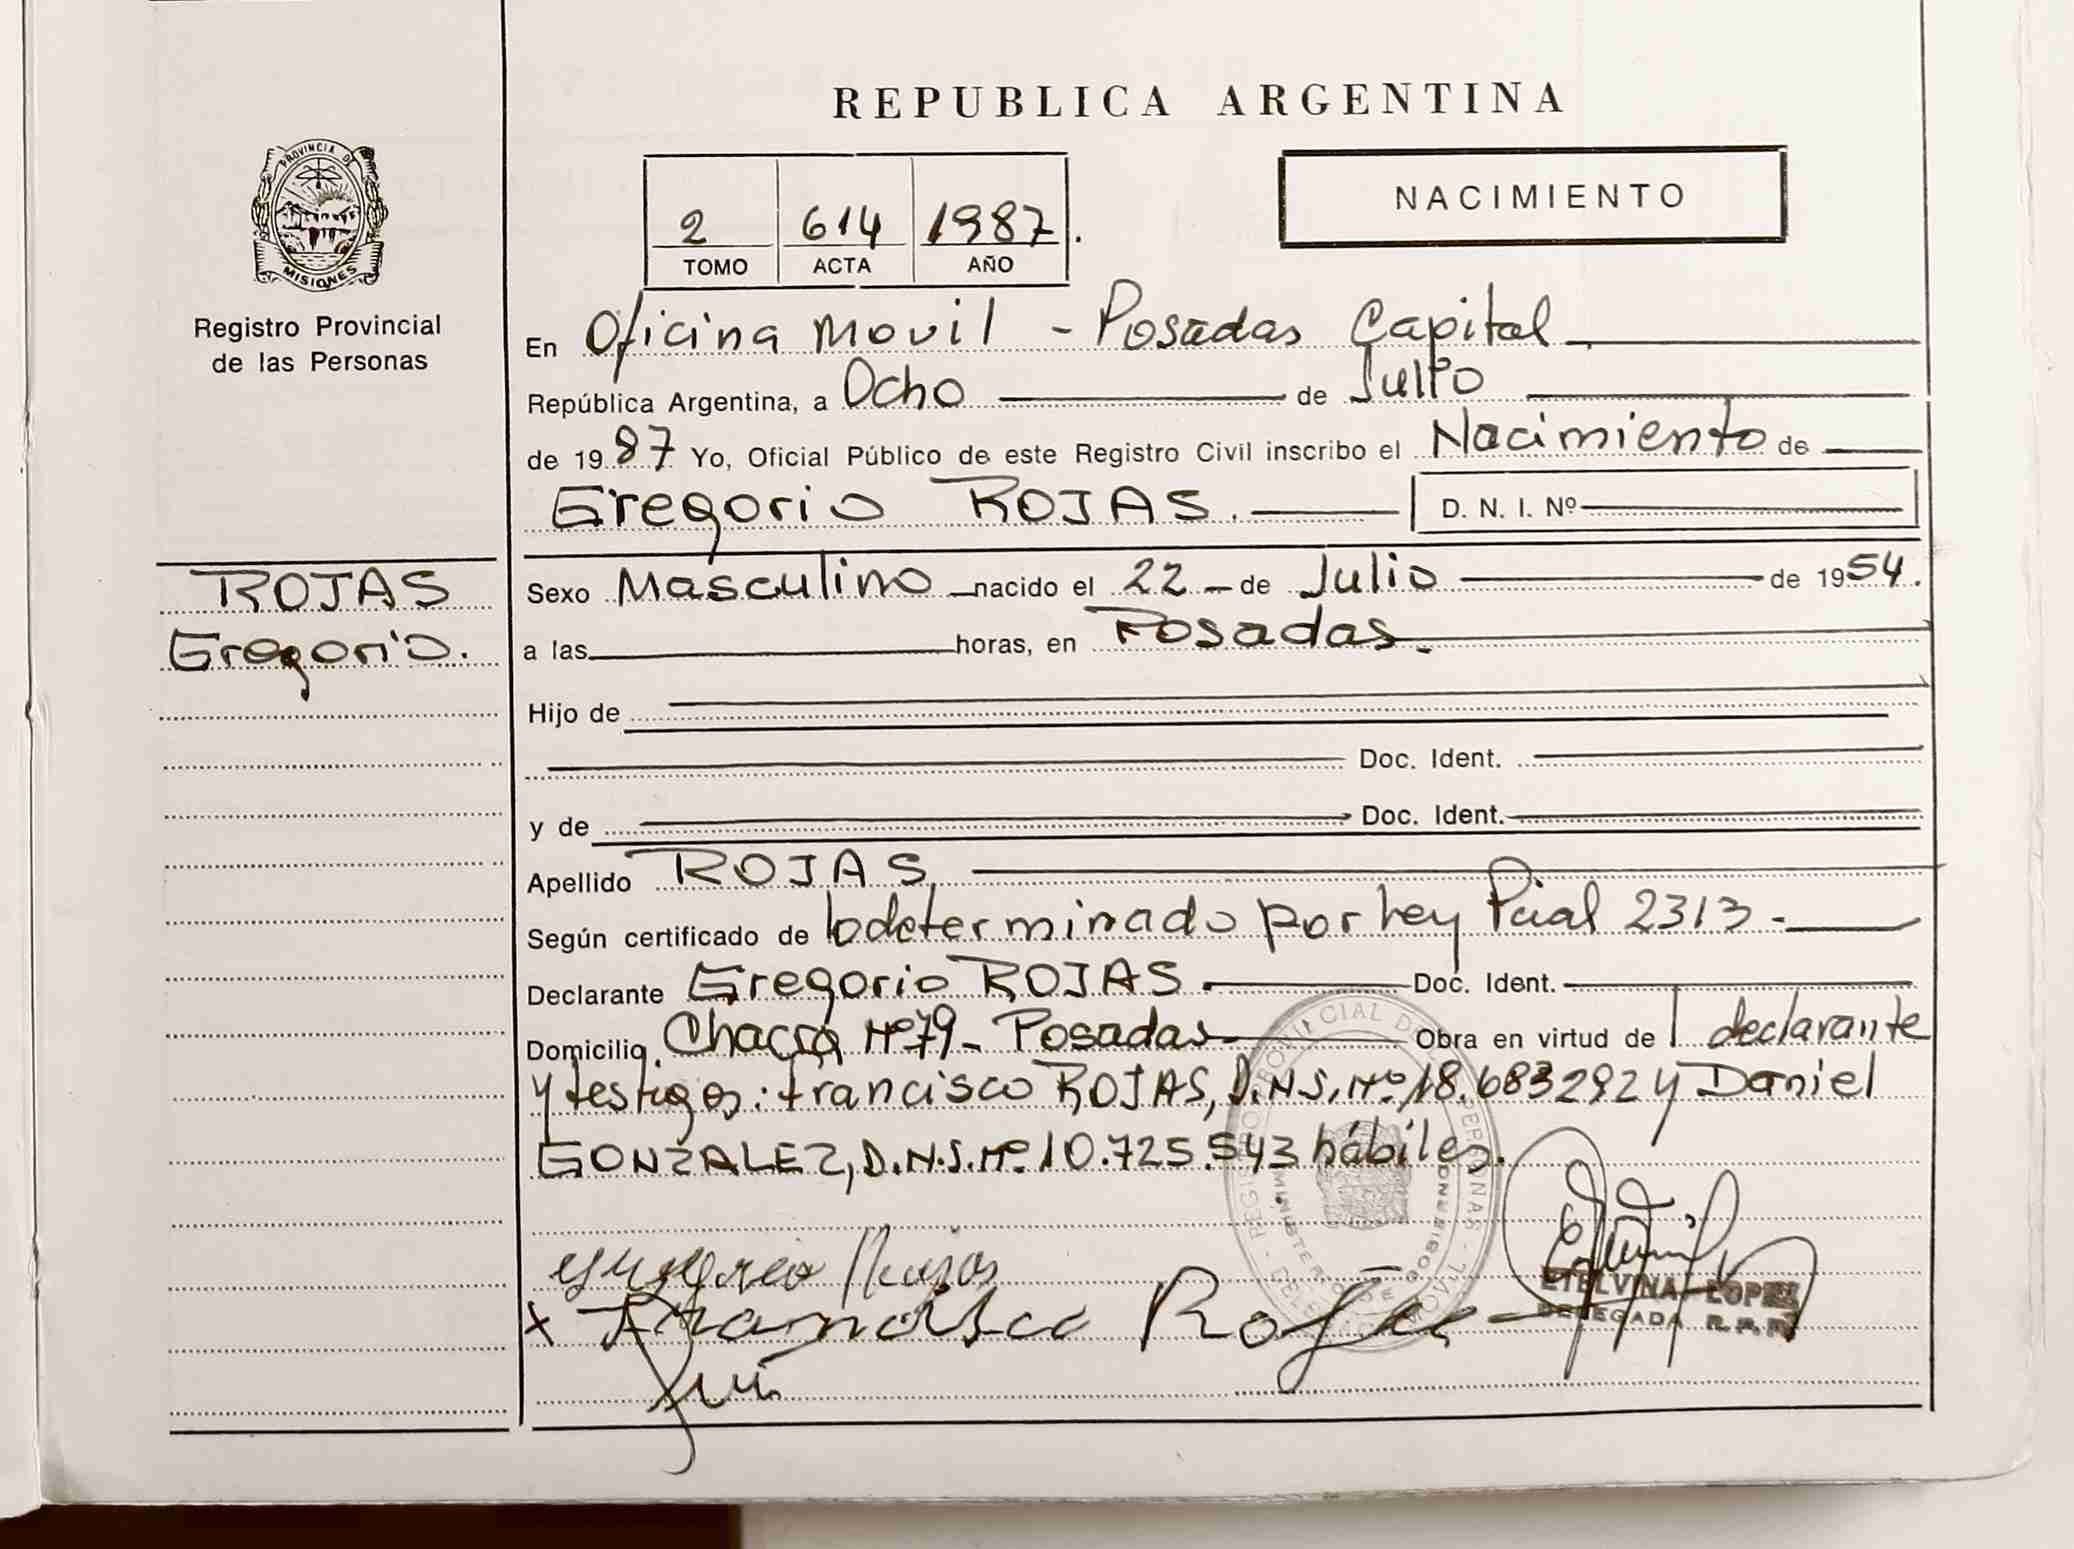 REPUBLICA ARGENTINA
PROVINCIA DE
MISIONES
Registro Provincial
de las Personas
2 614 1987.
TOMO ACTA AÑO
NACIMIENTO
En Oficina Movil - Posadas Capital
República Argentina, a Ocho de Julio
de 1987 Yo, Oficial Público de este Registro Civil inscribo el Nacimiento de
Gregorio ROJAS. D. N. I. Nº
ROJAS
Gregorio.
Sexo Masculino nacido el 22 - de Julio de 1954.
a las horas, en Posadas.
Hijo de
Doc. Ident.
y de Doc. Ident.
Apellido ROJAS
Según certificado de lo determinado por Ley Pcial 2313 -
Declarante Gregorio ROJAS Doc. Ident.
Domicilio Chacra Nº 79 - Posadas Obra en virtud de l declarante
y testigos: Francisco ROJAS, D.N.I. Nº 18.683292 y Daniel
GONZALEZ, D.N.I. Nº 10.725.543 hábiles.
Gregorio Rojas
x Francisco Rojas
ETELVINA LOPEZ
DELEGADA R.P.P.